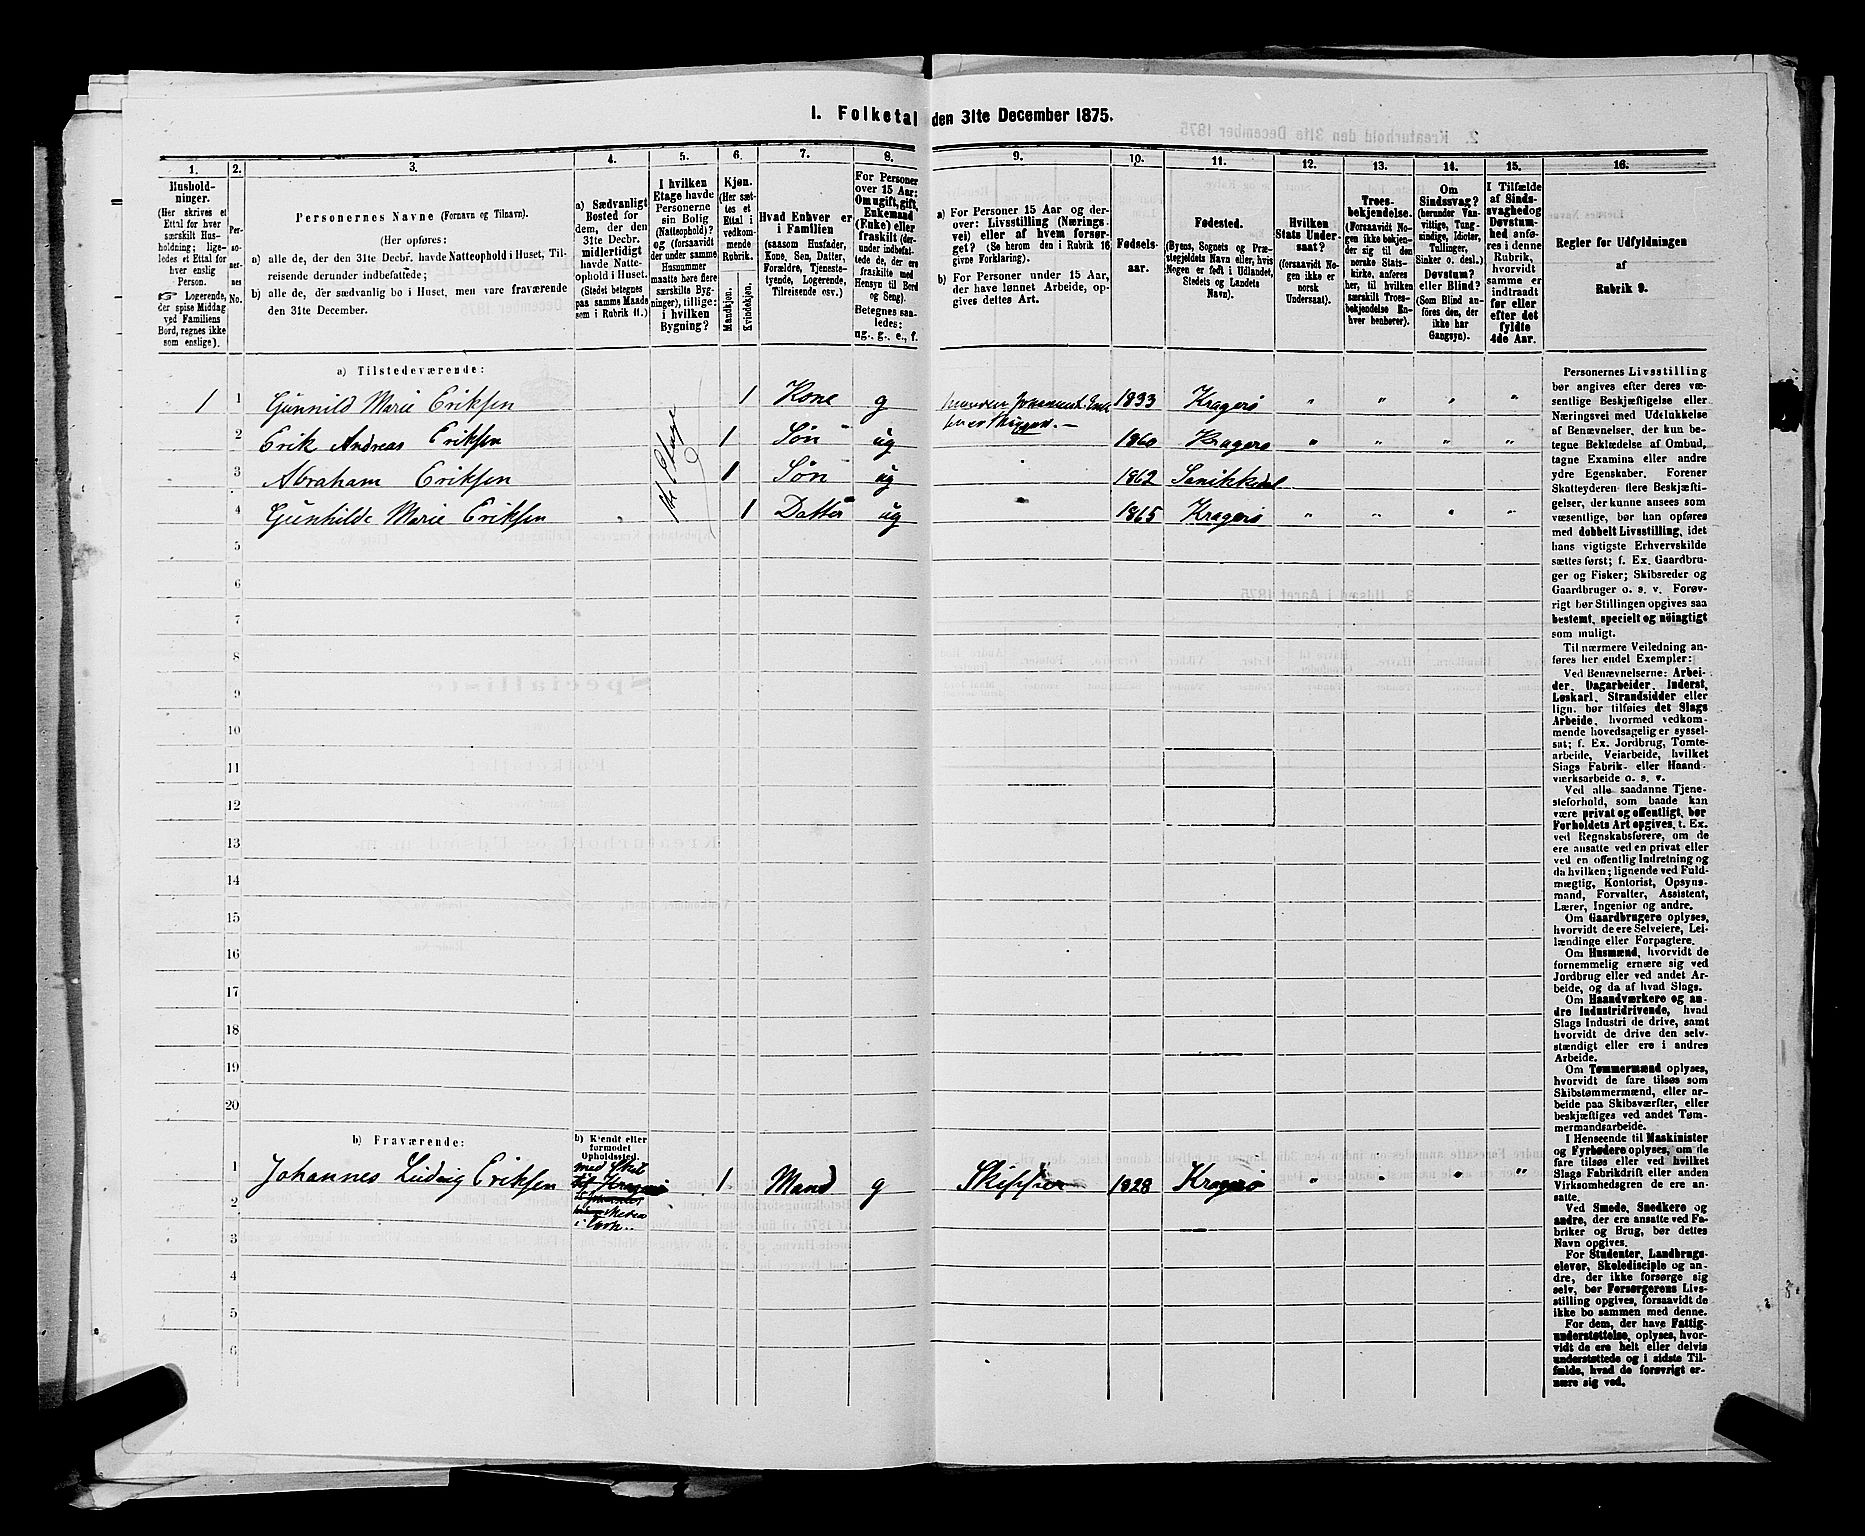 1. Folketal den 31te December 1875.
1.
2.
3.
4.
5.
6.
7.
8.
9.
10.
11.
12.
13.
14.
15.
16.
Hushold-
ninger.
(Her skrives et
Ettal for hver
særskilt Hus-
holdning; lige-
ledes et Ettal for
hver enslig
Person.
☞ Logerende,
der spise Middag
ved Familiens
Bord, regnes ikke
som enslige).
Per-
so-
ner-
nes
No.
Personernes Navne (Fornavn og Tilnavn).
(Her opføres:
a) alle de, der den 31te Decbr. havde Natteophold i Huset, Til-
reisende derunder indbefattede;
b) alle de, der sædvanlig bo i Huset, men vare fraværende
den 31te December.
a) Sædvanligt
Bosted for
dem, der den
31te Decbr.
midlertidigt
havde Natte-
ophold i Huset.
(Stedet betegnes
paa samme Maade
som i Rubrik 11.)
I hvilken
Etage havde
Personerne
sin Bolig
(Natteophold)?
og (forsaavidt
der under samme
Husnummer
maatte høre flere
særskilte Byg-
ninger), tillige:
i hvilken
Bygning?
Kjøn.
(Her sæt-
tes et
Ettal i
vedkom-
mende
Rubrik.
Mandkjøn.
Kvindekjøn.
Hvad Enhver er
i Familien
(saasom Husfader,
Kone, Søn, Datter,
Forældre, Tjeneste-
tyende, Logerende,
Tilreisende osv.)
For Personer
over 15 Aar:
Om ugift, gift,
Enkemand
(Enke) eller
fraskilt (der-
under indbefat-
tede de, der ere
fraskilte med
Hensyn til Bord
og Seng).
Betegnes saa-
ledes:
ug., g., e., f.
a) For Personer 15 Aar og der-
over: Livsstilling (Nærings-
vei) eller af hvem forsør-
get? (Se herom den i Rubrik 16
givne Forklaring).
b) For Personer under 15 Aar,
der have lønnet Arbeide, op-
gives dettes Art.
Fødsels-
aar.
Fødested.
(Byens, Sognets og Præ-
stegjeldets Navn eller, hvis
Nogen er født i Udlandet,
Stedets og Landets
Navn).
Hvilken
Stats Under-
saat?
(forsaavidt No-
gen ikke er
norsk
Undersaat).
Troes-
bekjendelse.
(Forsaavidt No-
gen ikke bekjen-
der sig til den
norske Stats-
kirke, anføres
her, til hvilken
særskilt Troes-
bekjendelse En-
hver henhører).
Om
Sindssvag?
(herunder Van-
vittige, Tung-
sindige, Idioter,
Tullinger,
Sinker o. desl.)
Døvstum?
eller Blind?
(Som Blind an-
føres den, der
ikke har
Gangsyn).
I Tilfælde
af Sinds-
svaghed og
Døvstum-
hed anfø-
res i denne
Rubrik,
hvorvidt
samme er
indtraadt
før eller
efter det
fyldte
4de Aar.
Regler for Udfyldningen
af
Rubrik 9.
a) Tilstedeværende:
1 1 Gunnild Marie Eriksen 1 Kone g 1833 Kragerø " " " "
2 Erik Andreas Eriksen 1 Søn ug 1860 Kragerø " " " "
3 Abraham Eriksen 1 Søn ug 1862 Sanikkdal
4 Gunhilde Marie Eriksen 1 Datter ug 1865 Kragerø " " " "
5
6
7
8
9
10
11
12
13
14
15
16
17
18
19
20
b) Fraværende:
b) Kjendt eller
formodet
Opholdssted.
1 Johannes Ludvig Eriksen 1 Mand g Skipper 1828 Kragerø " " " "
med Skib
i Cork
2
3
4
5
6
Personernes Livsstilling
bør angives efter deres væ-
sentlige Beskjæftigelse eller
Næringsvei med Udelukkelse
af Benævnelser, der kun be-
tegne Beklædelse af Ombud,
tagne Examina eller andre
ydre Egenskaber. Forener
Skatteyderen flere Beskjæfti-
gelser, der kunne ansees som
væsentlige, bør han opføres
med dobbelt Livsstilling, idet
hans vigtigste Erhvervskilde
sættes først; f. Ex. Gaardbru-
ger og Fisker; Skibsreder og
Gaardbruger o. s. v. Forøv-
rigt bør Stillingen opgives saa
bestemt, specielt og nöiagtigt
som muligt.
Til nærmere Veiledning an-
føres her endel Exempler:
Ved Benævnelserne: Arbei-
der, Dagarbeider, Inderst,
Løskarl, Strandsidder eller
lign. bør tilføies det Slags
Arbeide, hvormed vedkom-
mende hovedsagelig er syssel-
sat; f. Ex. Jordbrug, Tomte-
arbeide, Veiarbeide, hvilket
Slags Fabrik- eller Haand-
værksarbeide o. s. v.
Ved alle saadanne Tjene-
steforhold, som baade kan
være privat og offentligt, bør
Forholdets Art opgives, t. Ex.
ved Regnskabsførere, om de
ere ansatte ved en privat eller
ved en offentlig Indretning og
da hvilken; lignende ved Fuld-
mægtig, Kontorist, Opsyns-
mand, Forvalter, Assistent,
Lærer, Ingeniør og andre.
Om Gaardbrugere oplyses,
hvorvidt de ere Selveiere, Lei-
lændinge eller Forpagtere.
Om Husmænd, hvorvidt de
fornemmelig ernære sig ved
Jordbrug eller ved andet Ar-
beide, og da af hvad Slags.
Om Haandværkere og an-
dre Industridrivende, hvad
Slags Industri de drive, samt
hvorvidt de drive den selv-
stændigt eller ere i andres
Arbeide.
Om Tømmermænd oplyses,
hvorvidt de fare tilsøs som
Skibstømmermænd, eller ar-
beide paa Skibsværfter, eller
beskjæftiges ved andet Tøm-
mermandsarbeide.
I Henseende til Maskinister
og Fyrbødere oplyses, om de
fare tilsøs eller ved hvilket
Slags Fabrikdrift eller anden
Virksomhedsgren de ere an-
satte.
Ved Smede, Snedkere og
andre, der ere ansatte ved Fa-
briker og Brug, bør dettes
Navn opgives.
For Studenter, Landbrugs-
elever, Skoledisciple og an-
dre, der ikke forsørge sig
selv, bør Forsørgerens Livs-
stilling opgives, forsaavidt de
ikke bo sammen med denne.
For dem, der have Fattig-
understøttelse, oplyses, hvor-
vidt de ere helt eller delvis
understøttede og i sidste Til-
fælde, hvad de forøvrigt er-
nære sig ved.